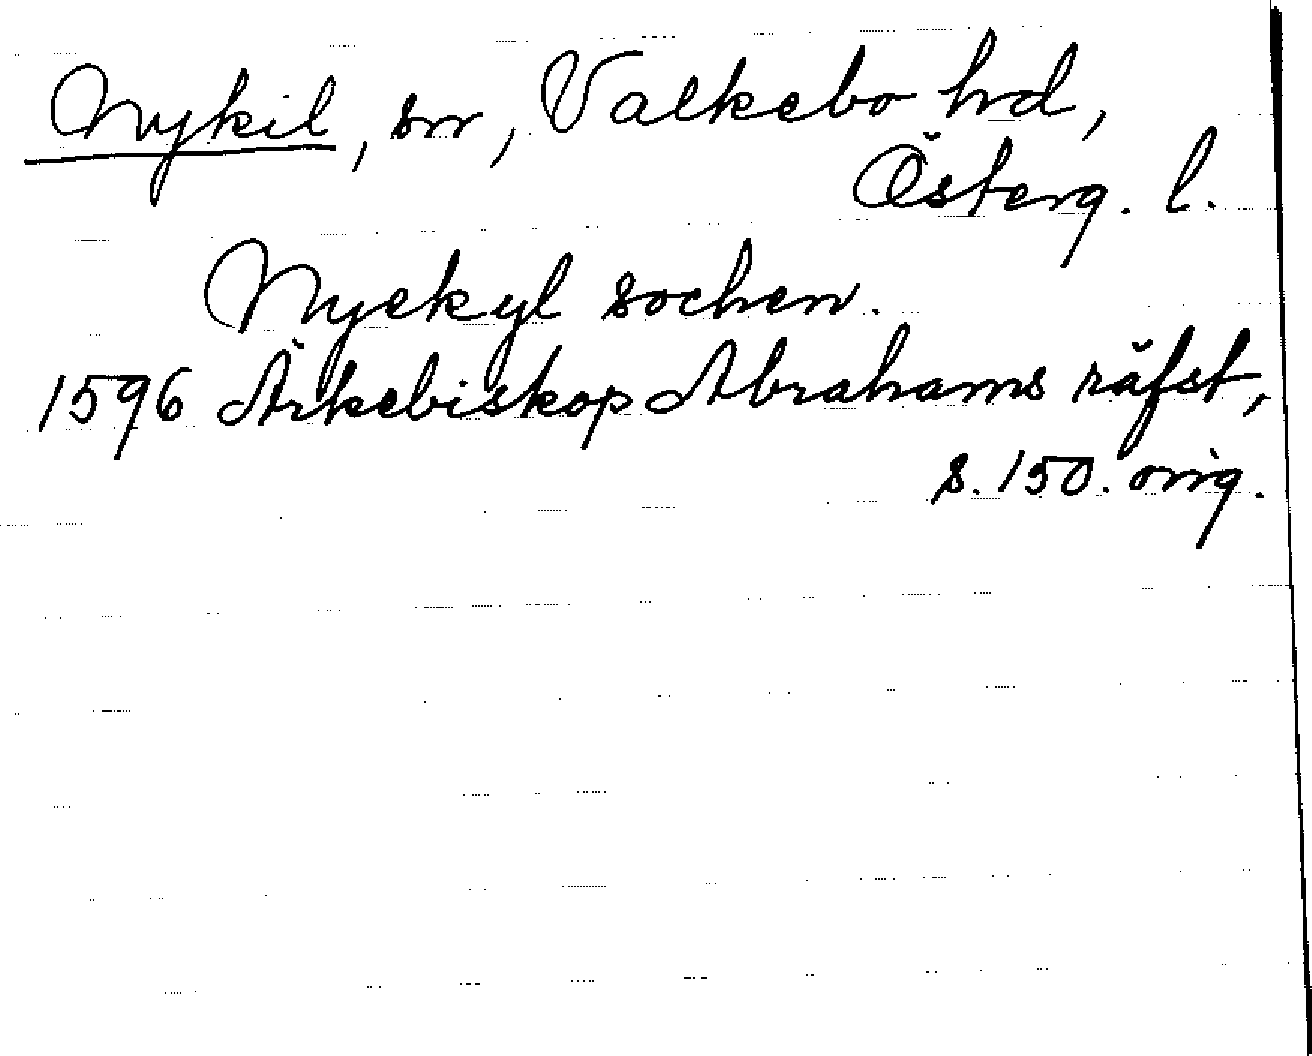 Nykil, sn, Valkebo hd,
Österg. l.
Nyckyl sochen.
1596 Ärkebiskop Abrahams räfst,
s. 150. orig.